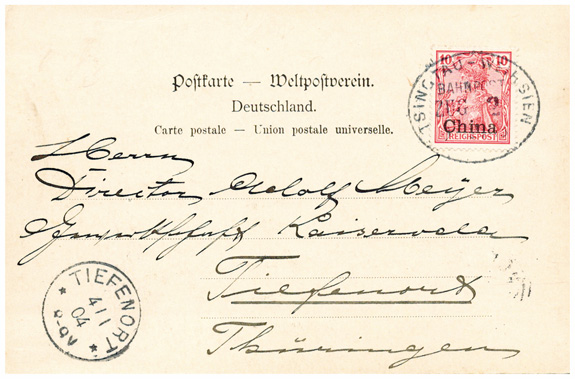 Postkarte — Weltpostverein.
Deutschland.
Carte postale — Union postale universelle.
10 10
REICHSPOST
China
TSINGTAU-WEIHSIEN
BAHNPOST
ZUG 2
Herrn
Director Adolf Meyer
Gewerkschaft Kaiseroda
Tiefenort
Thüringen
* TIEFENORT *
4/1
04